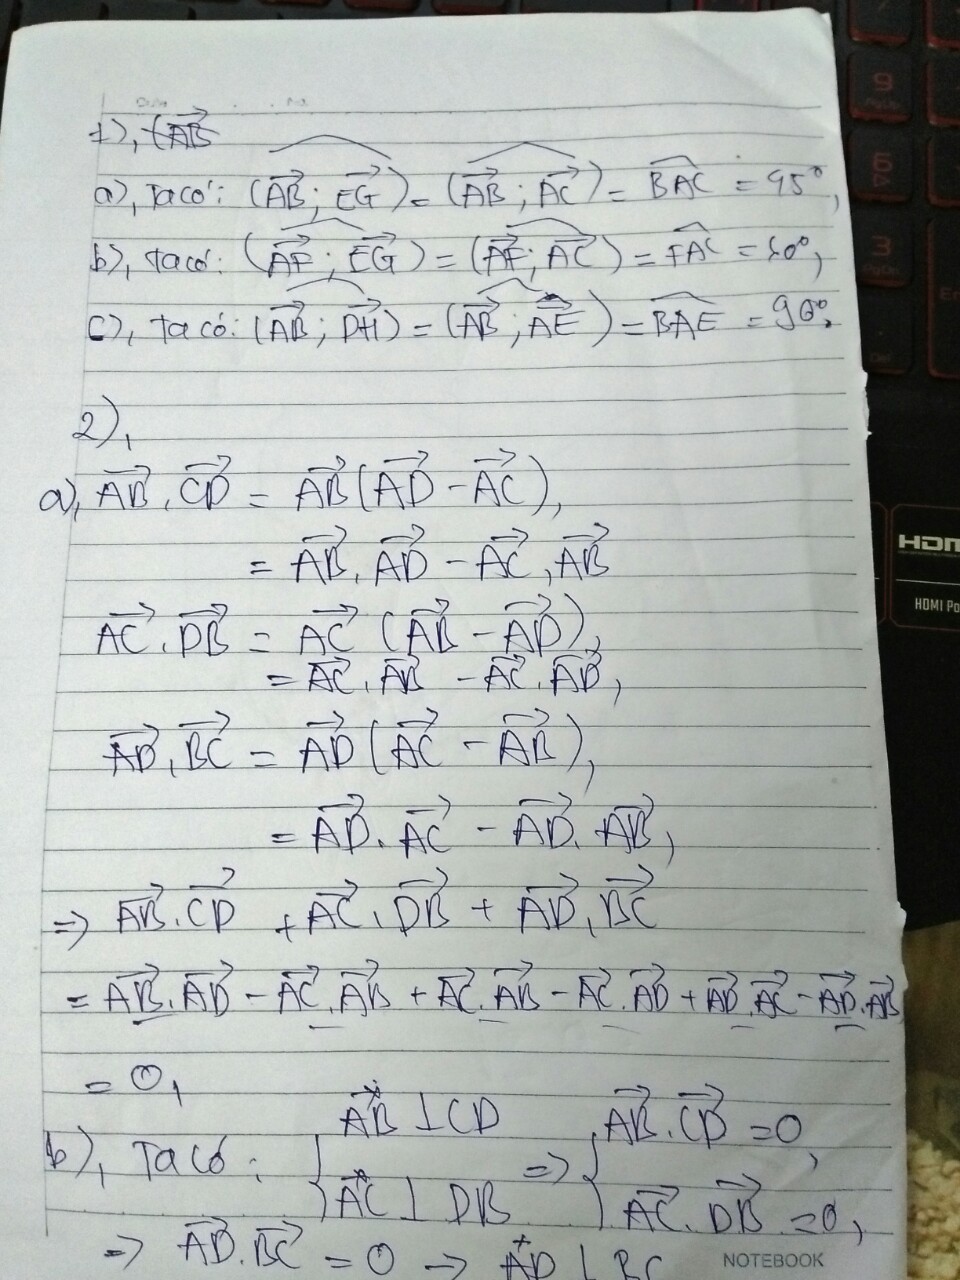 1), (AB
a), Ta có: (AB; EG) = (AB; AC) = BAC = 45°,
b), Ta có: (AF; EG) = (AF; AC) = FAC = 60°,
c), Ta có: (AB; DH) = (AB; AE) = BAE = 90°,
2),
a), AB.CD = AB(AD - AC),
= AB.AD - AC.AB
AC.DB = AC (AB - AD),
= AC.AB - AC.AD,
AD.BC = AD(AC - AB),
= AD.AC - AD.AB,
=> AB.CD + AC.DB + AD.BC
= AB.AD - AC.AB + AC.AB - AC.AD + AD.AC - AD.AB
= 0,
b), Ta có: { AB ⊥ CD => { AB.CD = 0,
AC ⊥ DB AC.DB = 0,
=> AD.BC = 0 → AD ⊥ BC
NOTEBOOK
HDMI